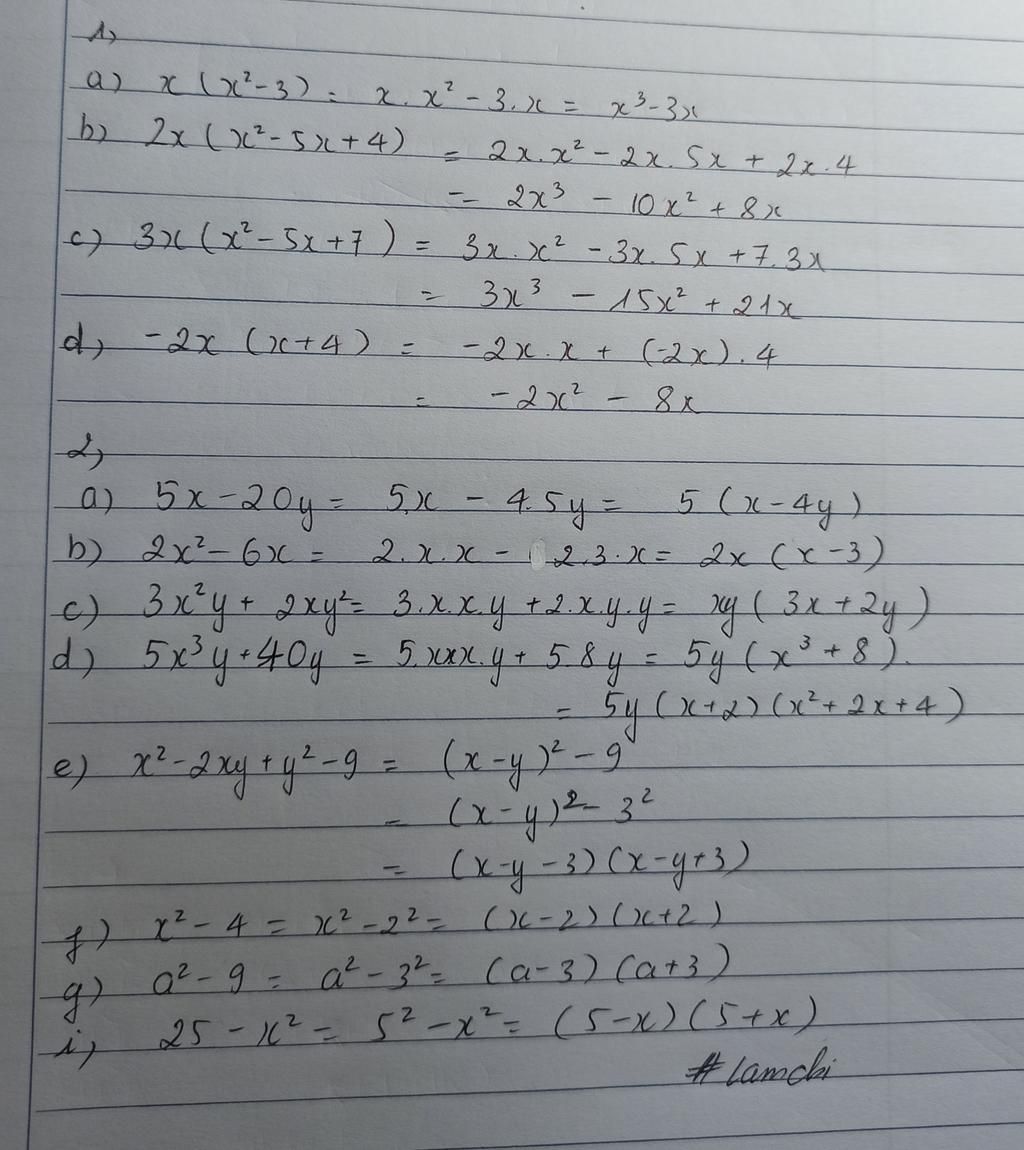 1,
a) x (x² - 3) = x . x² - 3 . x = x³ - 3x
b) 2x (x² - 5x + 4) = 2x . x² - 2x . 5x + 2x . 4
= 2x³ - 10x² + 8x
c) 3x (x² - 5x + 7) = 3x . x² - 3x . 5x + 7 . 3x
= 3x³ - 15x² + 21x
d) -2x (x + 4) = -2x . x + (-2x) . 4
= -2x² - 8x
2,
a) 5x - 20y = 5.x - 4.5y = 5 (x - 4y)
b) 2x² - 6x = 2.x.x - 2.3.x = 2x (x - 3)
c) 3x²y + 2xy² = 3.x.x.y + 2.x.y.y = xy (3x + 2y)
d) 5x³y + 40y = 5.xxx.y + 5.8y = 5y (x³ + 8).
= 5y (x + 2) (x² + 2x + 4)
e) x² - 2xy + y² - 9 = (x - y)² - 9
= (x - y)² - 3²
= (x - y - 3) (x - y + 3)
f) x² - 4 = x² - 2² = (x - 2) (x + 2)
g) a² - 9 = a² - 3² = (a - 3) (a + 3)
i, 25 - x² = 5² - x² = (5 - x) (5 + x)
# Lamchi